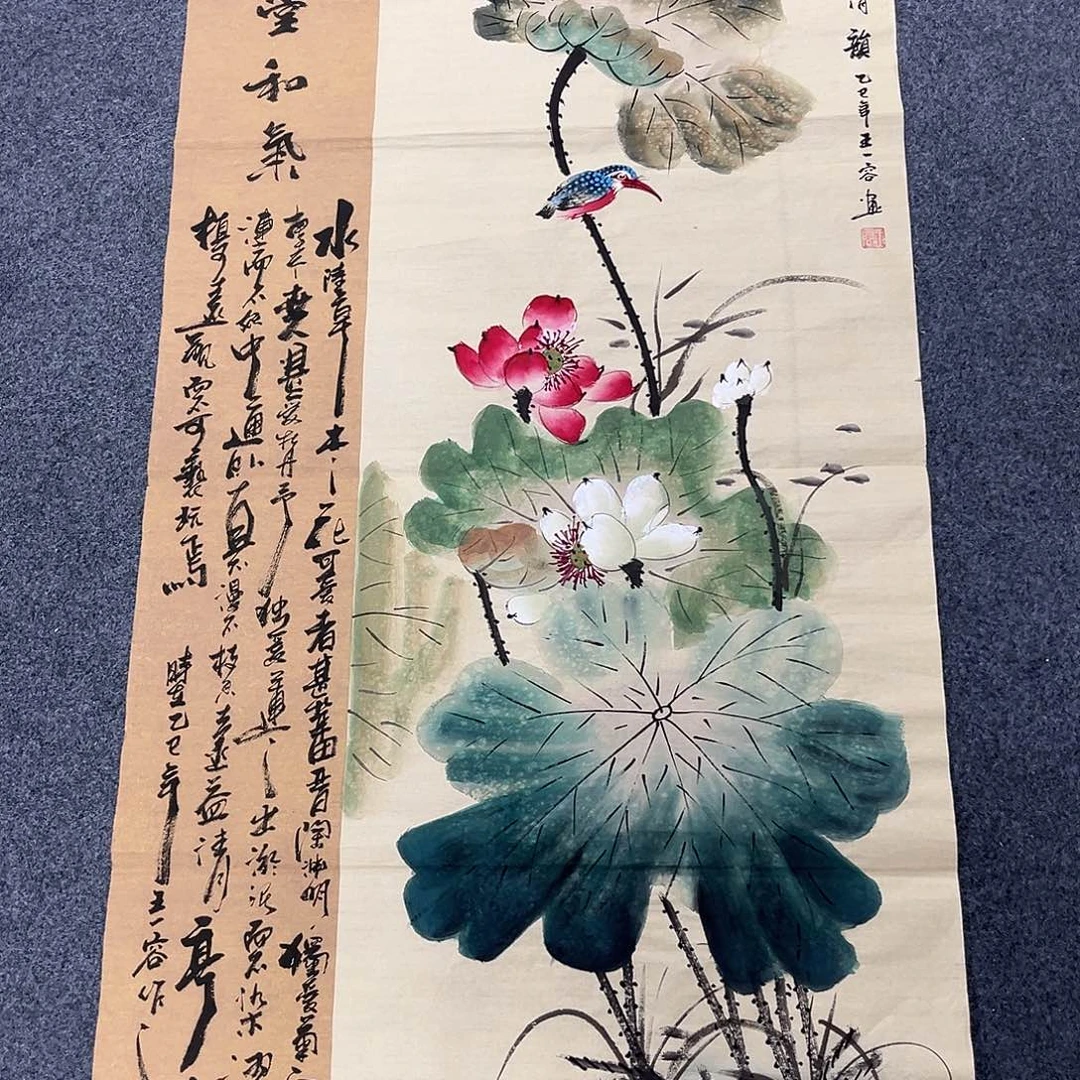 韻乙巳年王一容畫
堂和氣
水陸草木之花可愛者甚蕃晉陶淵明獨愛菊
甚愛牡丹予独爱蓮之出淤泥而不染
漣而不妖中通外直不漫不枝香遠益清亭
植遠觀而不可褻玩焉
時在乙巳年王一容作